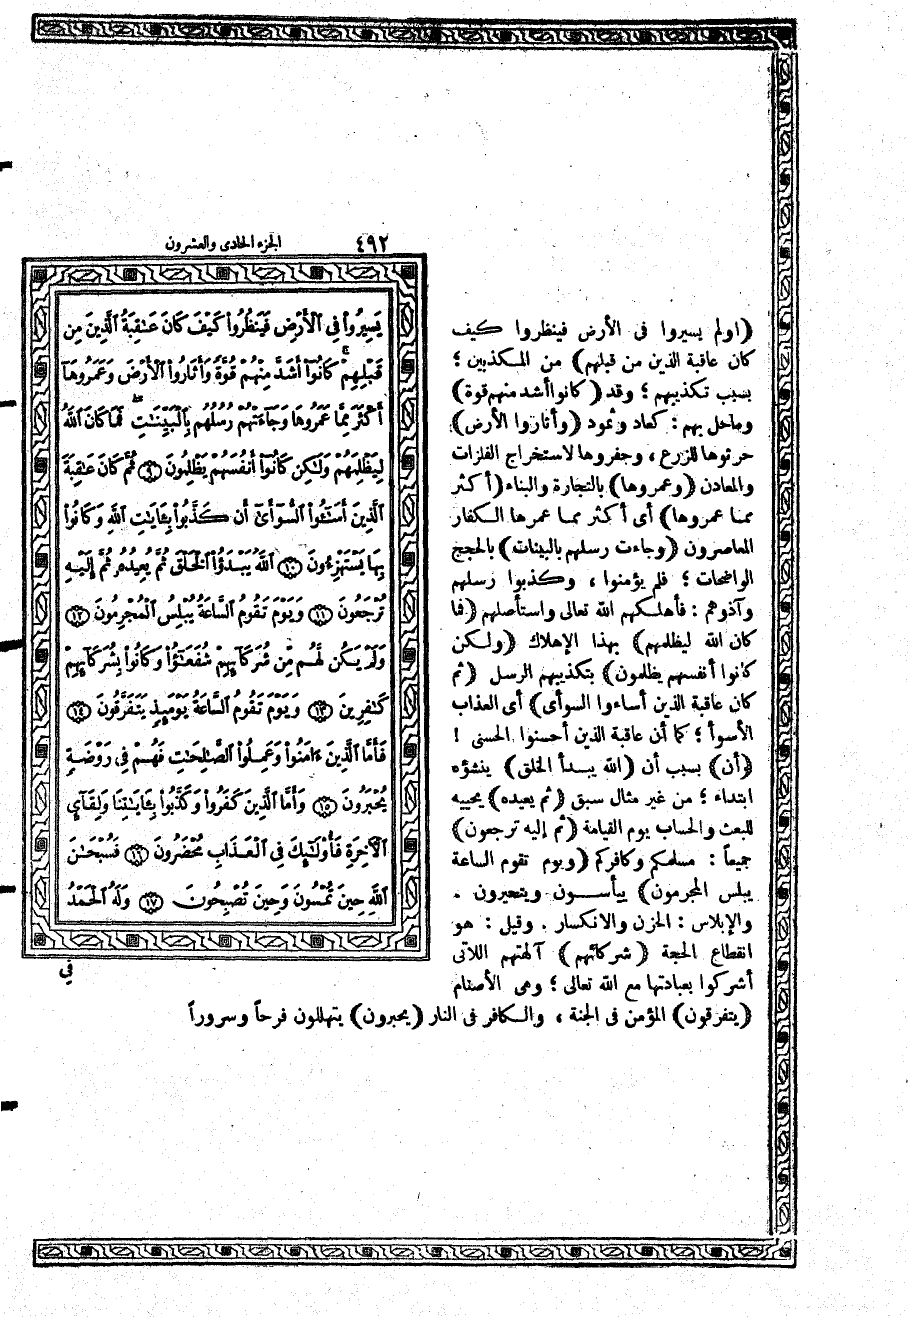 ٤٩٢
الجزء الحادى والعشرون
(اولم يسيروا فى الأرض فينظروا كيف
كان عاقبة الذين من قبلهم) من المكذبين ؛
بسبب تكذيبهم ؛ وقد (كانوا أشد منهم قوة)
وماحل بهم : كعاد وثمود (وأثاروا الأرض)
حرثوها للزرع ، وحفروها لاستخراج الفلزات
والمعادن (وعمروها) بالتجارة والبناء (أكثر
مما عمروها) أى أكثر مما عمرها الكفار
المعاصرون (وجاءت رسلهم بالبينات) بالحجج
الواضحات ؛ فلم يؤمنوا ، وكذبوا رسلهم
وآذوهم : فأهلكهم الله تعالى واستأصلهم (فما
كان الله ليظلمهم) بهذا الإهلاك (ولكن
كانوا أنفسهم يظلمون) بتكذيبهم الرسل (ثم
كان عاقبة الذين أساءوا السوأى) أى العذاب
الأسوأ ؛ كما أن عاقبة الذين أحسنوا الحسنى !
(أن) بسبب أن (الله يبدأ الخلق) ينشؤه
ابتداء ؛ من غير مثال سبق (ثم يعيده) يحييه
للبعث والحساب يوم القيامة (ثم إليه ترجعون)
جميعاً : مسلمكم وكافركم (ويوم تقوم الساعة
يبلس المجرمون) ييأسون ويتحيرون .
والإبلاس : الحزن والانكسار . وقيل : هو
انقطاع الحجة (شركائهم) آلهتهم اللاتى
أشركوا بعبادتها مع الله تعالى ؛ وهى الأصنام
(يتفرقون) المؤمن فى الجنة ، والكافر فى النار (يحبرون) يتهللون فرحاً وسروراً
يَسِيرُوا۟ فِى ٱلْأَرْضِ فَيَنظُرُوا۟ كَيْفَ كَانَ عَـٰقِبَةُ ٱلَّذِينَ مِن
قَبْلِهِمْ ۚ كَانُوٓا۟ أَشَدَّ مِنْهُمْ قُوَّةً وَأَثَارُوا۟ ٱلْأَرْضَ وَعَمَرُوهَآ
أَكْثَرَ مِمَّا عَمَرُوهَا وَجَآءَتْهُمْ رُسُلُهُم بِٱلْبَيِّنَـٰتِ ۖ فَمَا كَانَ ٱللَّهُ
لِيَظْلِمَهُمْ وَلَـٰكِن كَانُوٓا۟ أَنفُسَهُمْ يَظْلِمُونَ ٩ ثُمَّ كَانَ عَـٰقِبَةَ
ٱلَّذِينَ أَسَـٰٓـُٔوا۟ ٱلسُّوٓأَىٰٓ أَن كَذَّبُوا۟ بِـَٔايَـٰتِ ٱللَّهِ وَكَانُوا۟
بِهَا يَسْتَهْزِءُونَ ١٠ ٱللَّهُ يَبْدَؤُا۟ ٱلْخَلْقَ ثُمَّ يُعِيدُهُۥ ثُمَّ إِلَيْهِ
تُرْجَعُونَ ١١ وَيَوْمَ تَقُومُ ٱلسَّاعَةُ يُبْلِسُ ٱلْمُجْرِمُونَ ١٢
وَلَمْ يَكُن لَّهُم مِّن شُرَكَآئِهِمْ شُفَعَـٰٓؤُا۟ وَكَانُوا۟ بِشُرَكَآئِهِمْ
كَـٰفِرِينَ ١٣ وَيَوْمَ تَقُومُ ٱلسَّاعَةُ يَوْمَئِذٍ يَتَفَرَّقُونَ ١٤
فَأَمَّا ٱلَّذِينَ ءَامَنُوا۟ وَعَمِلُوا۟ ٱلصَّـٰلِحَـٰتِ فَهُمْ فِى رَوْضَةٍ
يُحْبَرُونَ ١٥ وَأَمَّا ٱلَّذِينَ كَفَرُوا۟ وَكَذَّبُوا۟ بِـَٔايَـٰتِنَا وَلِقَآئِ
ٱلْـَٔاخِرَةِ فَأُو۟لَـٰٓئِكَ فِى ٱلْعَذَابِ مُحْضَرُونَ ١٦ فَسُبْحَـٰنَ
ٱللَّهِ حِينَ تُمْسُونَ وَحِينَ تُصْبِحُونَ ١٧ وَلَهُ ٱلْحَمْدُ
فى